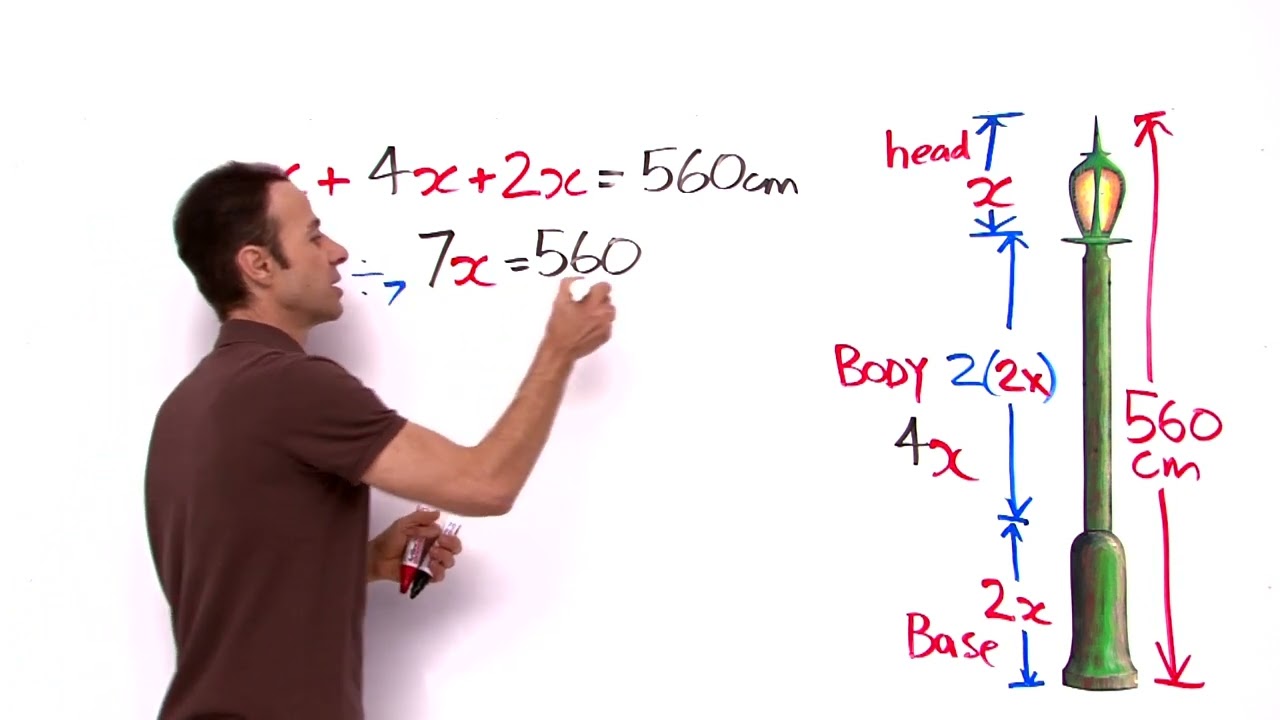 x + 4x + 2x = 560cm
÷7 7x = 560
head
x
BODY 2(2x)
4x
560
cm
2x
Base